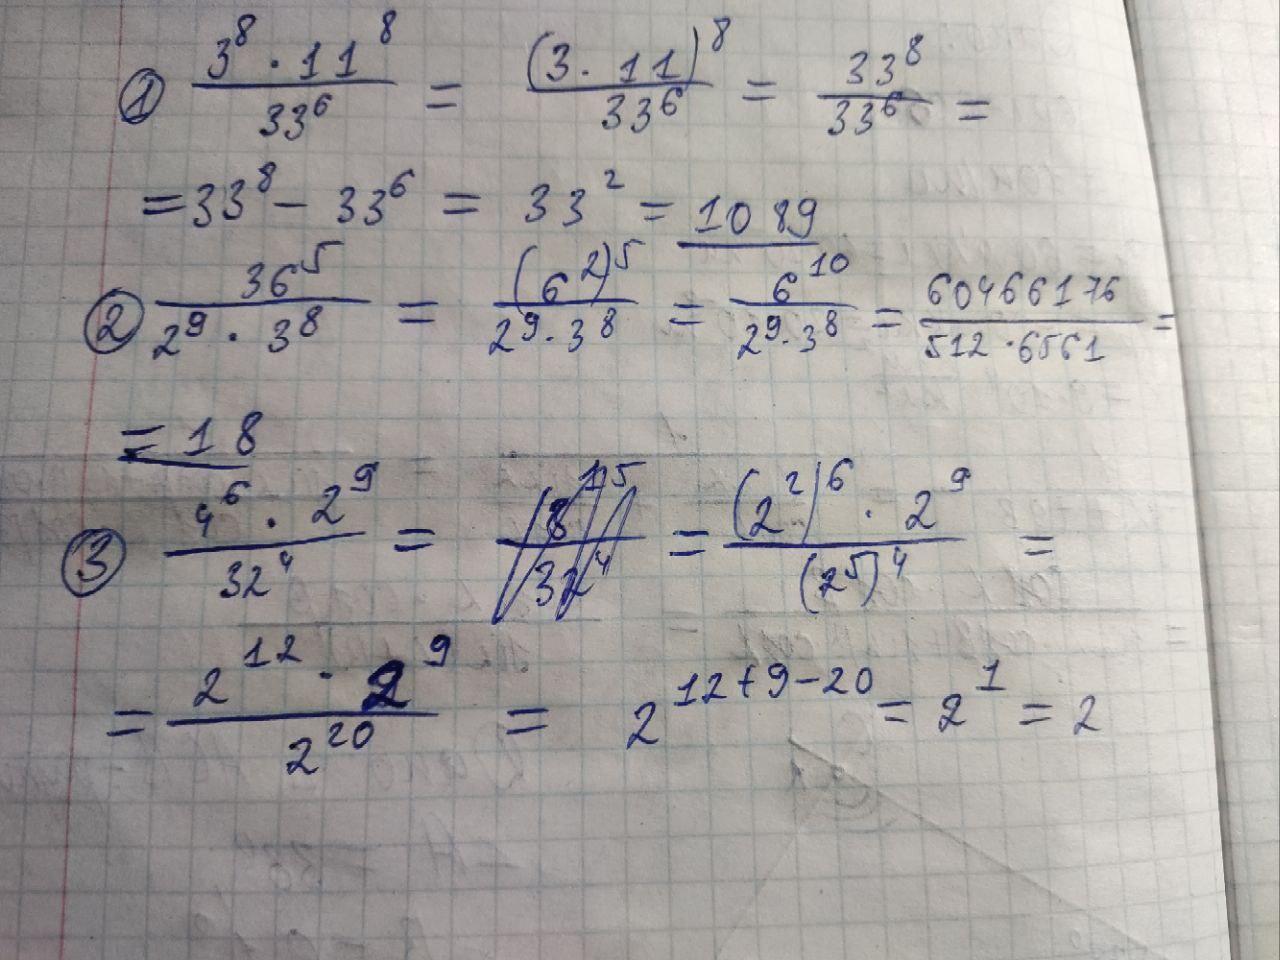 ① 3^8 · 11^8 / 33^6 = (3 · 11)^8 / 33^6 = 33^8 / 33^6 =
= 33^8 - 33^6 = 33^2 = 1089
② 36^5 / 2^9 · 3^8 = (6^2)^5 / 2^9 · 3^8 = 6^10 / 2^9 · 3^8 = 60466176 / 512 · 6561 =
= 18
③ 4^6 · 2^9 / 32^4 = = (2^2)^6 · 2^9 / (2^5)^4 =
= 2^12 · 2^9 / 2^20 = 2^12+9-20 = 2^1 = 2